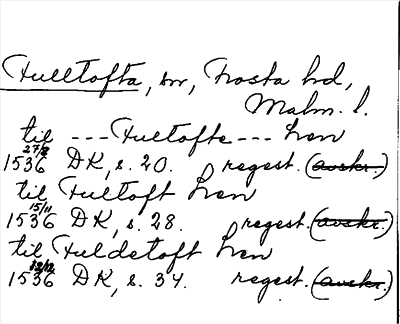 Fulltofta, sn, Frosta hd,
Malm. l.
til --- Fultofte --- Len
1536 27/8 DK, s. 20. regest. (avskr.)
til Fultoft Len
1536 15/11 DK, s. 28. regest. (avskr.)
til Fuldetoft Len
1536 DK, s. 34. regest. (avskr.)